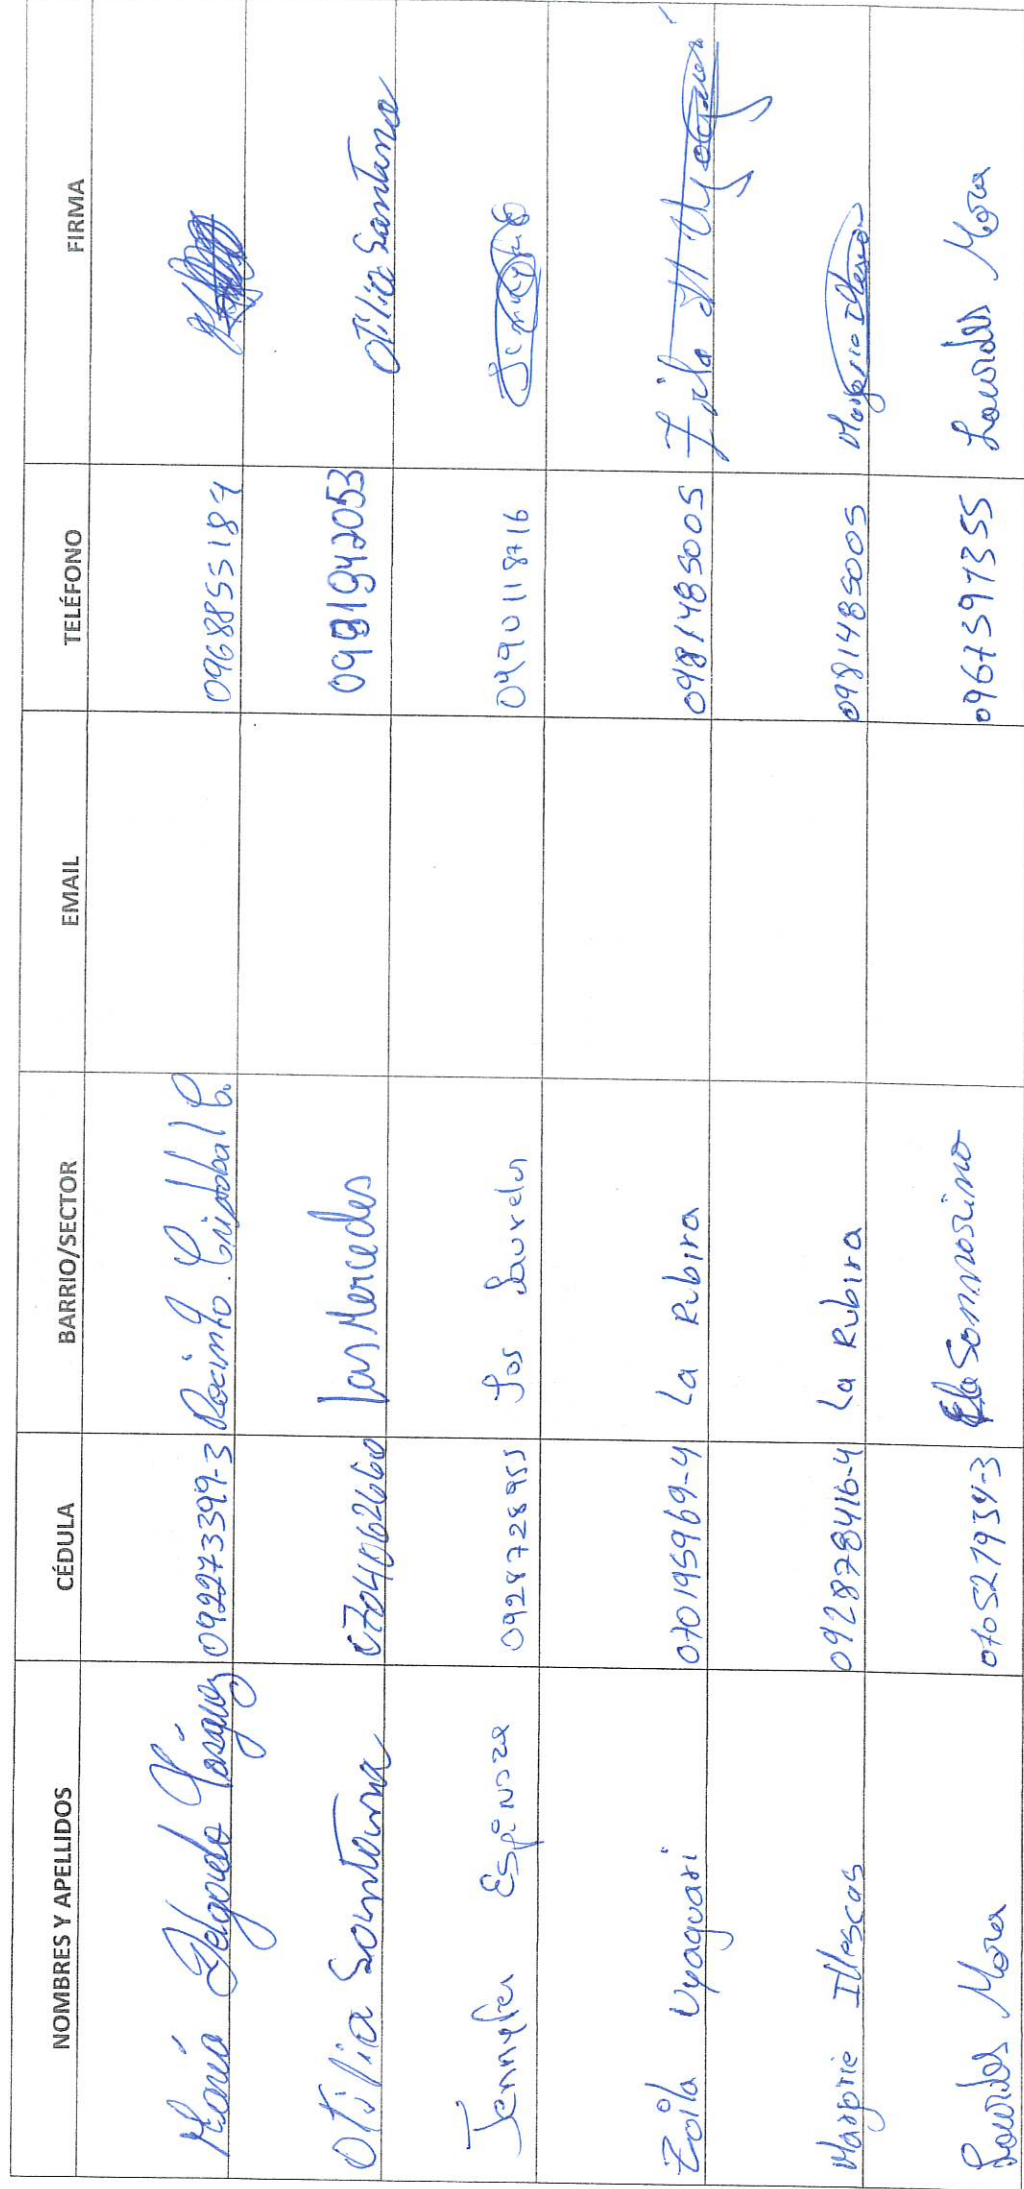 NOMBRES Y APELLIDOS CÉDULA BARRIO/SECTOR EMAIL TELÉFONO FIRMA
María Delgado Vásquez 092273399-3 Recinto Cristobal C. 0968855184
Otilia Santana 0704062660 Las Mercedes 0991942053 Otilia Santana
Jennyfer Espinoza 0928728955 Los Laureles 0990118716
Zoila Uyaguari 070195969-4 La Rubira 0981485005 Zoila M Uyaguari
Marjorie Illescas 092878416-4 La Rubira 0981485005 Marjorie Illescas
Lourdes Mora 070527934-3 0967397355 Lourdes Mora